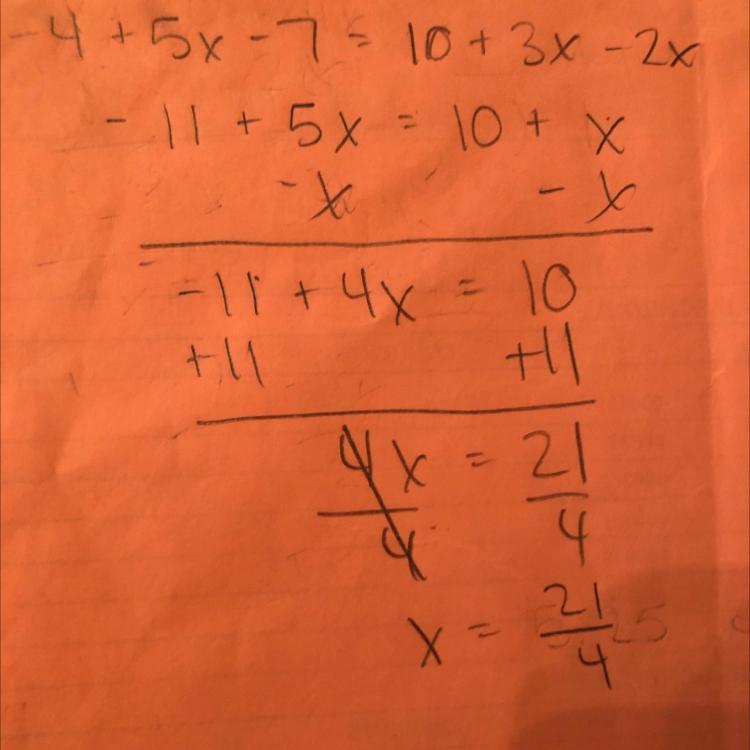 -4 + 5x - 7 = 10 + 3x - 2x
- 11 + 5x = 10 + x
- x - x
-11 + 4x = 10
+11 +11
4x = 21
4 4
x = 21
4